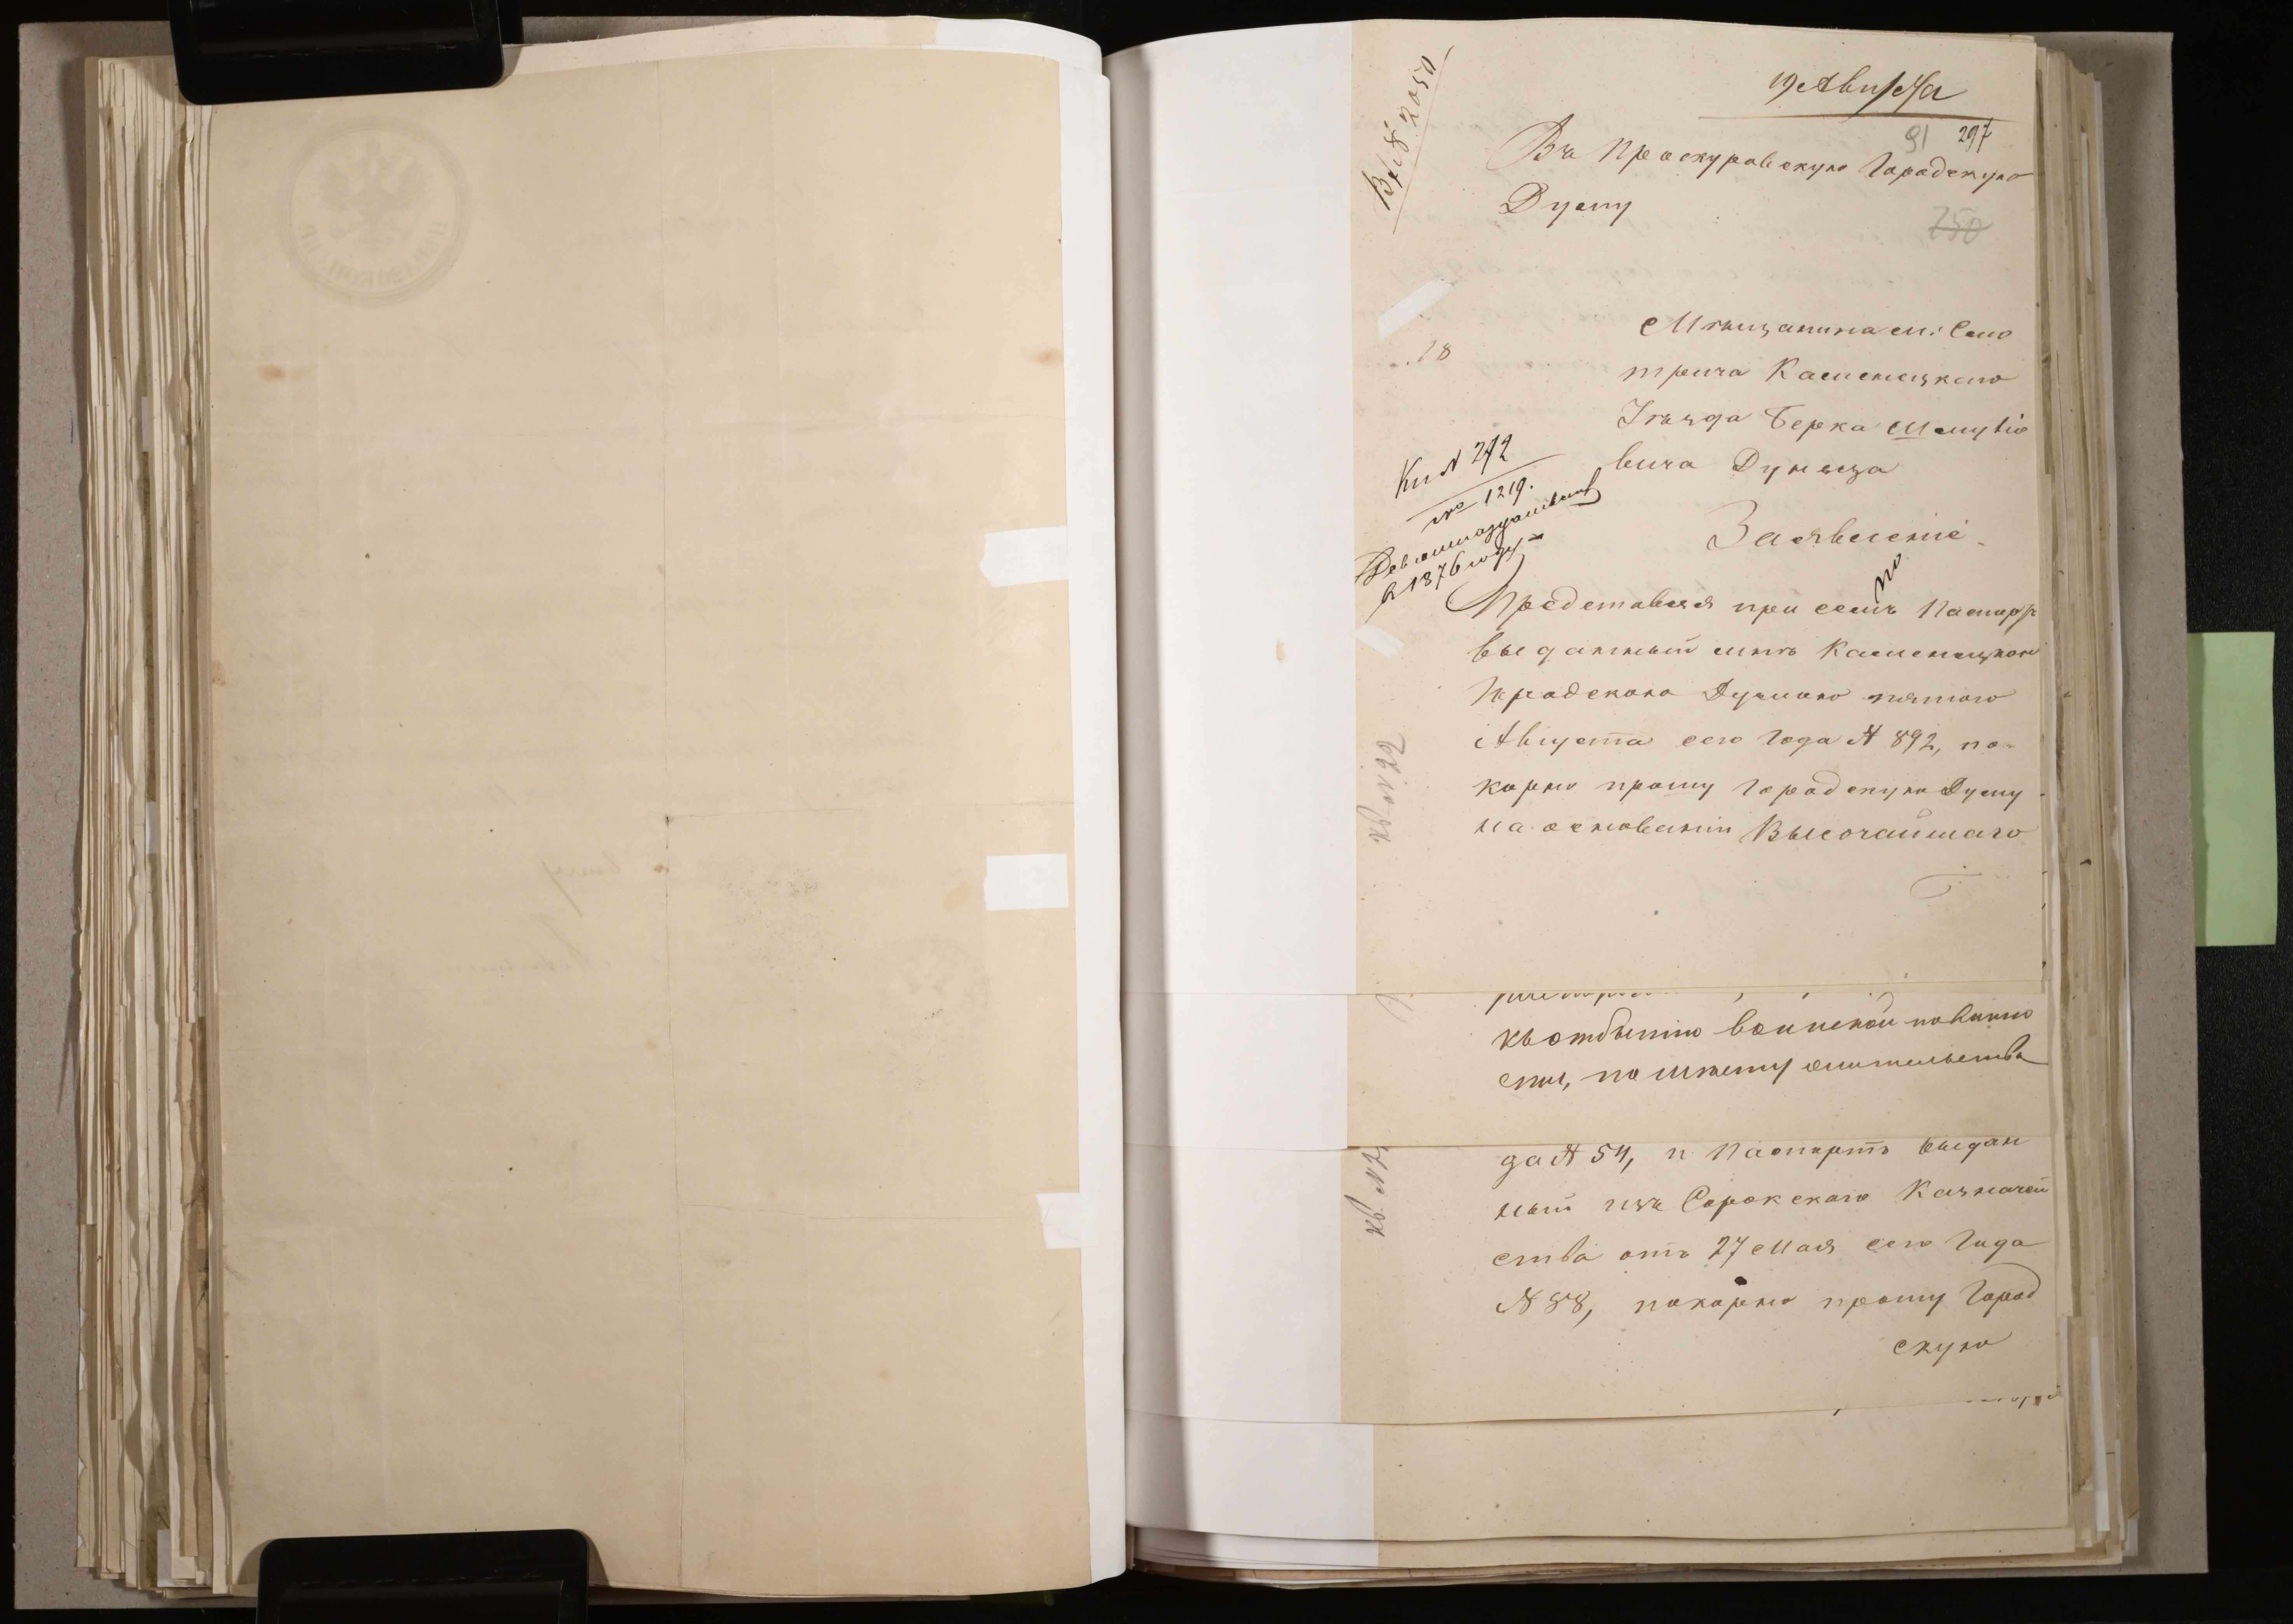 19 Августа
91 297
Въ Проскуровскую Городскую
Думу
750
Вх 18 2050
Мѣщанина м: Смо
трича Каменецкаго
Уѣзда Берка Шмулiо
вича Дуньца
18
Кн № 272
№ 1219.
в 1876 году
Заявленiе
Представляя при семъ Паспор
выданный мнѣ Каменецкою
Городскою Думою пятого
Августа сего Года № 892, по-
корно прошу Городскую Думу
на основанiи Высочайшаго
кв. № 22
къ отбытiю воинской повинно
сти, по мѣсту жительства
да № 54, и Паспортъ выдан
ный изъ Сорокскаго Казначей
ства отъ 27 Мая сего Года
№ 58, покорно прошу Город
скую
кв. №